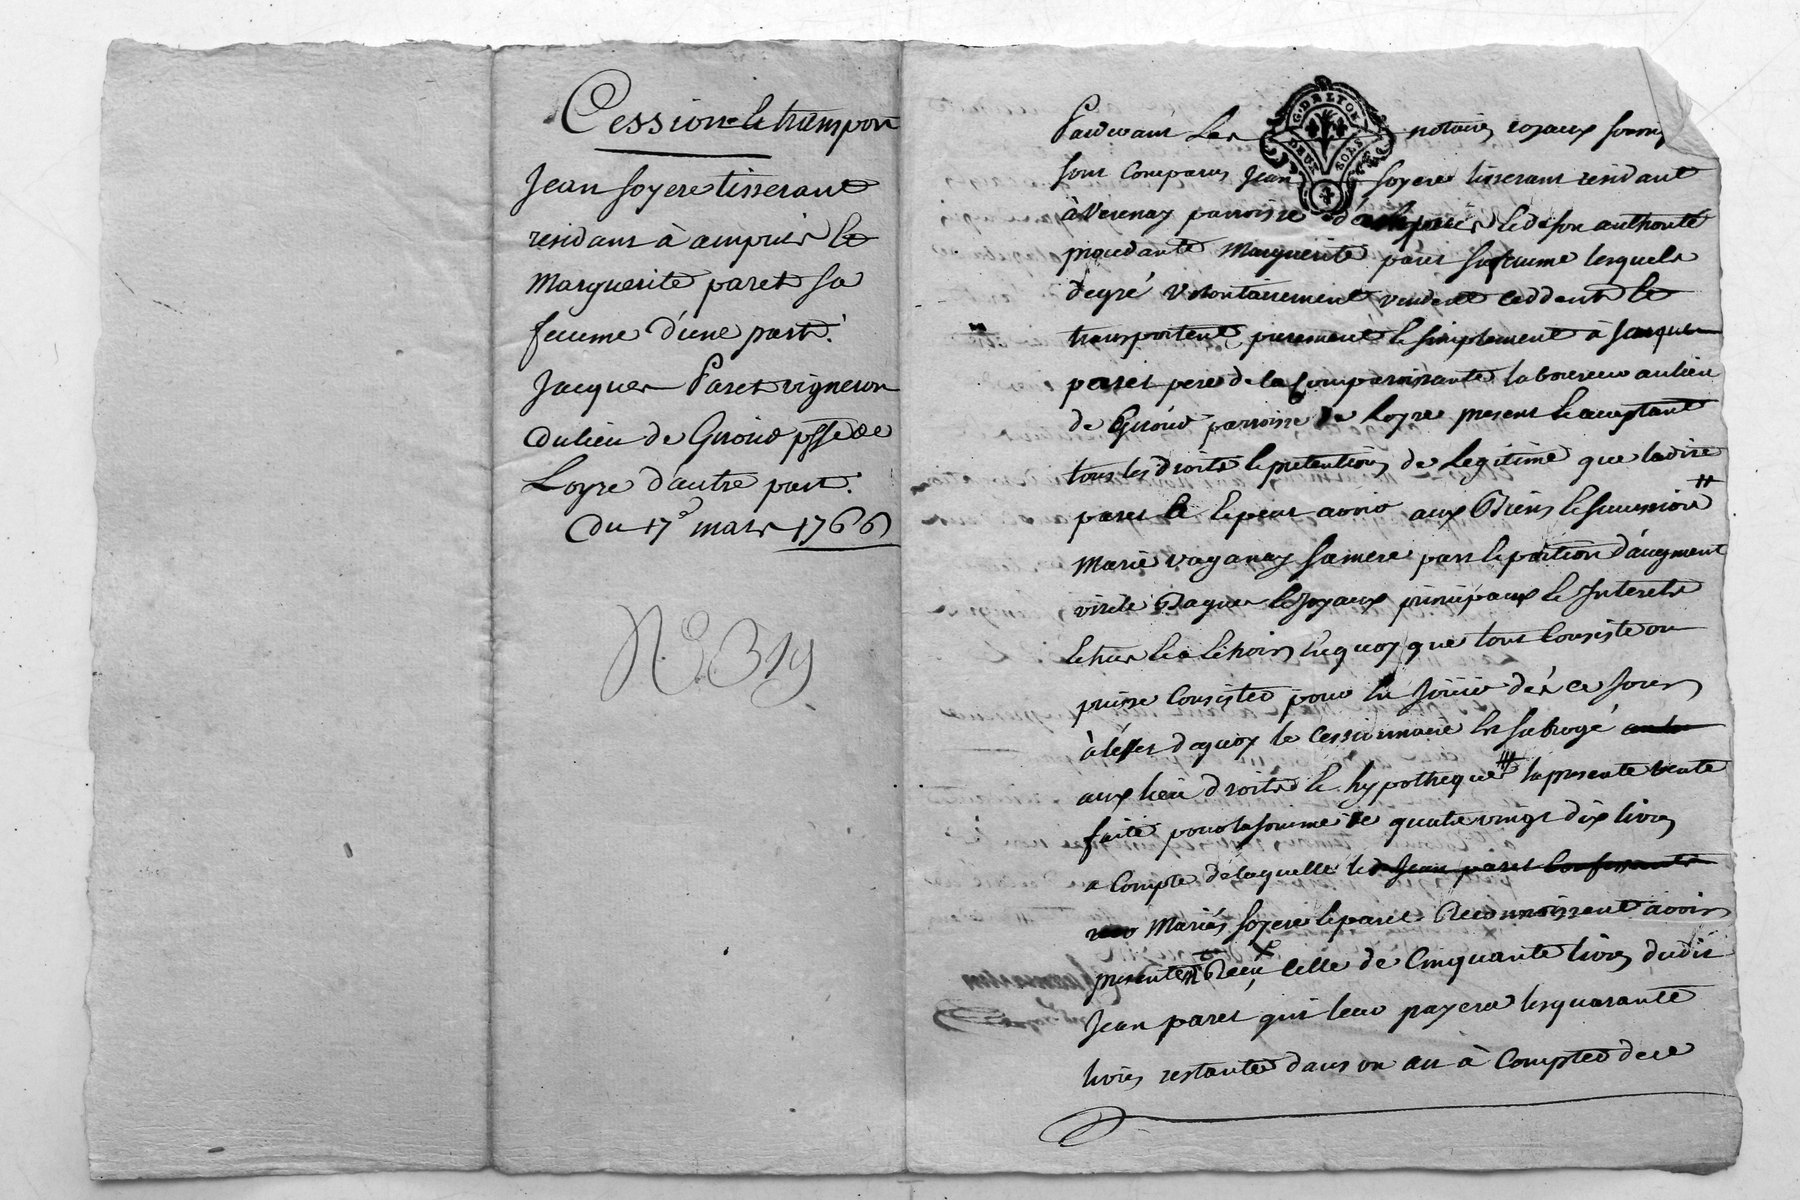 Cession & transport
Jean Soyere tisserant
residant à ampuis &
Marguerite paret sa
femme d'une part.
Jacques Paret vigneron
du lieu de Giroud psse de
Loyre d'autre part.
Du 17e mars 1766
N.° 319
Pardevant Les notaires royaux soussig
G. DE LYON
DEUX SOLS
sont Comparus Jean Soyere tisserant residant
à Verenay parroisse d'ampuis & de son authorité
procedante Marguerite paret sa femme lesquels
de gré volontairement vendent ceddent &
transportent purement & simplement à Jacques
paret pere de la Comparoissante laboureur au lieu
de Giroud parroisse de Loyre present & acceptant
tous les droits & pretentions de Legitime que ladite
paret a & peut avoir aux Biens & succession
Marie vaganay sa mere part & portion d'augment
virile Bagues & Joyaux principaux & Interets
en quoy que tout Consiste ou
puisse Consister pour en Jouir dés ce Jour
à l'effet de quoy le cessionnaire est subrogé
aux lieu droits & hypotheque la presente vente
faite pour la somme de quatre vingt dix livres
a Compte de laquelle les Jean paret Confessent
Mariés Soyere & paret Reconnoissent avoir
presentemt Reçu celle de Cinquante livres dudit
Jean paret qui leur payera les quarante
livres restante dans un an à Compter de ce